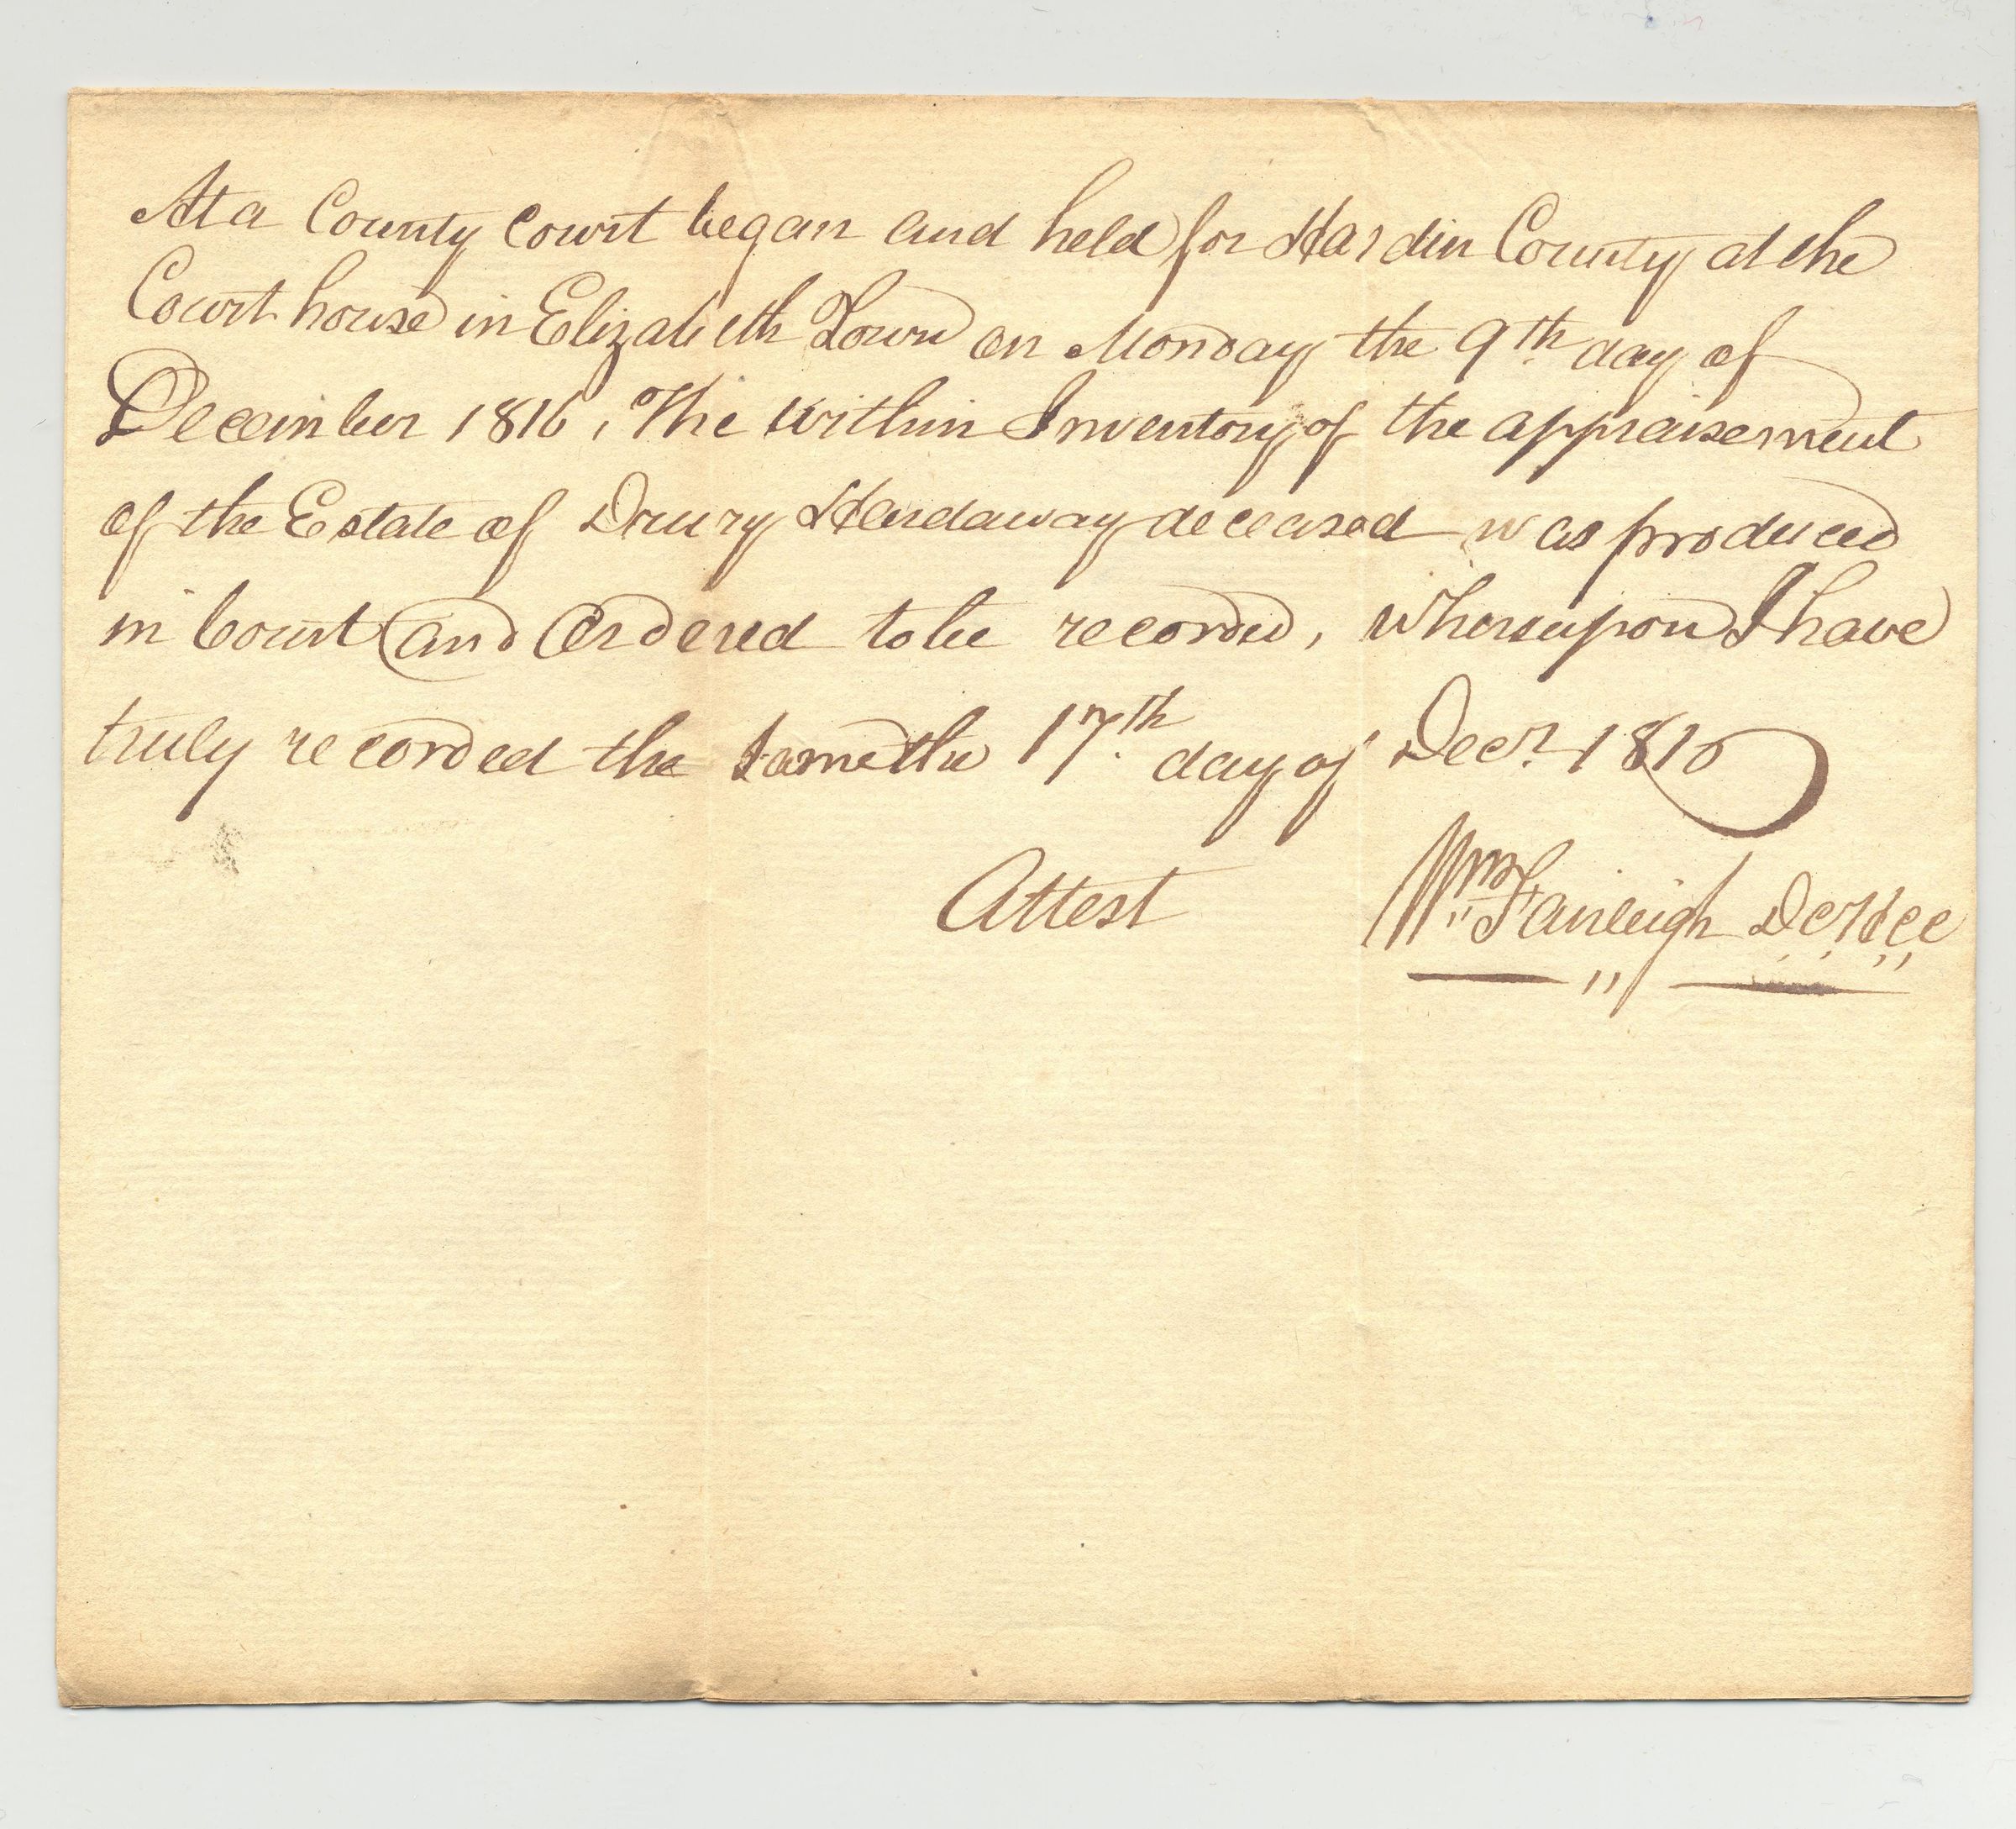 At a County Court began and held for Hardin County at the
Court house in Elizabeth Town on Monday the 9th day of
December 1816, The within Inventory of the appraisement
of the Estate of Drury Hardaway deceased was produced
in Court and Ordered to be recorded, Whereupon I have
truly recorded the same the 17th day of Decr. 1816
Attest Wm Fairleigh DCHCC